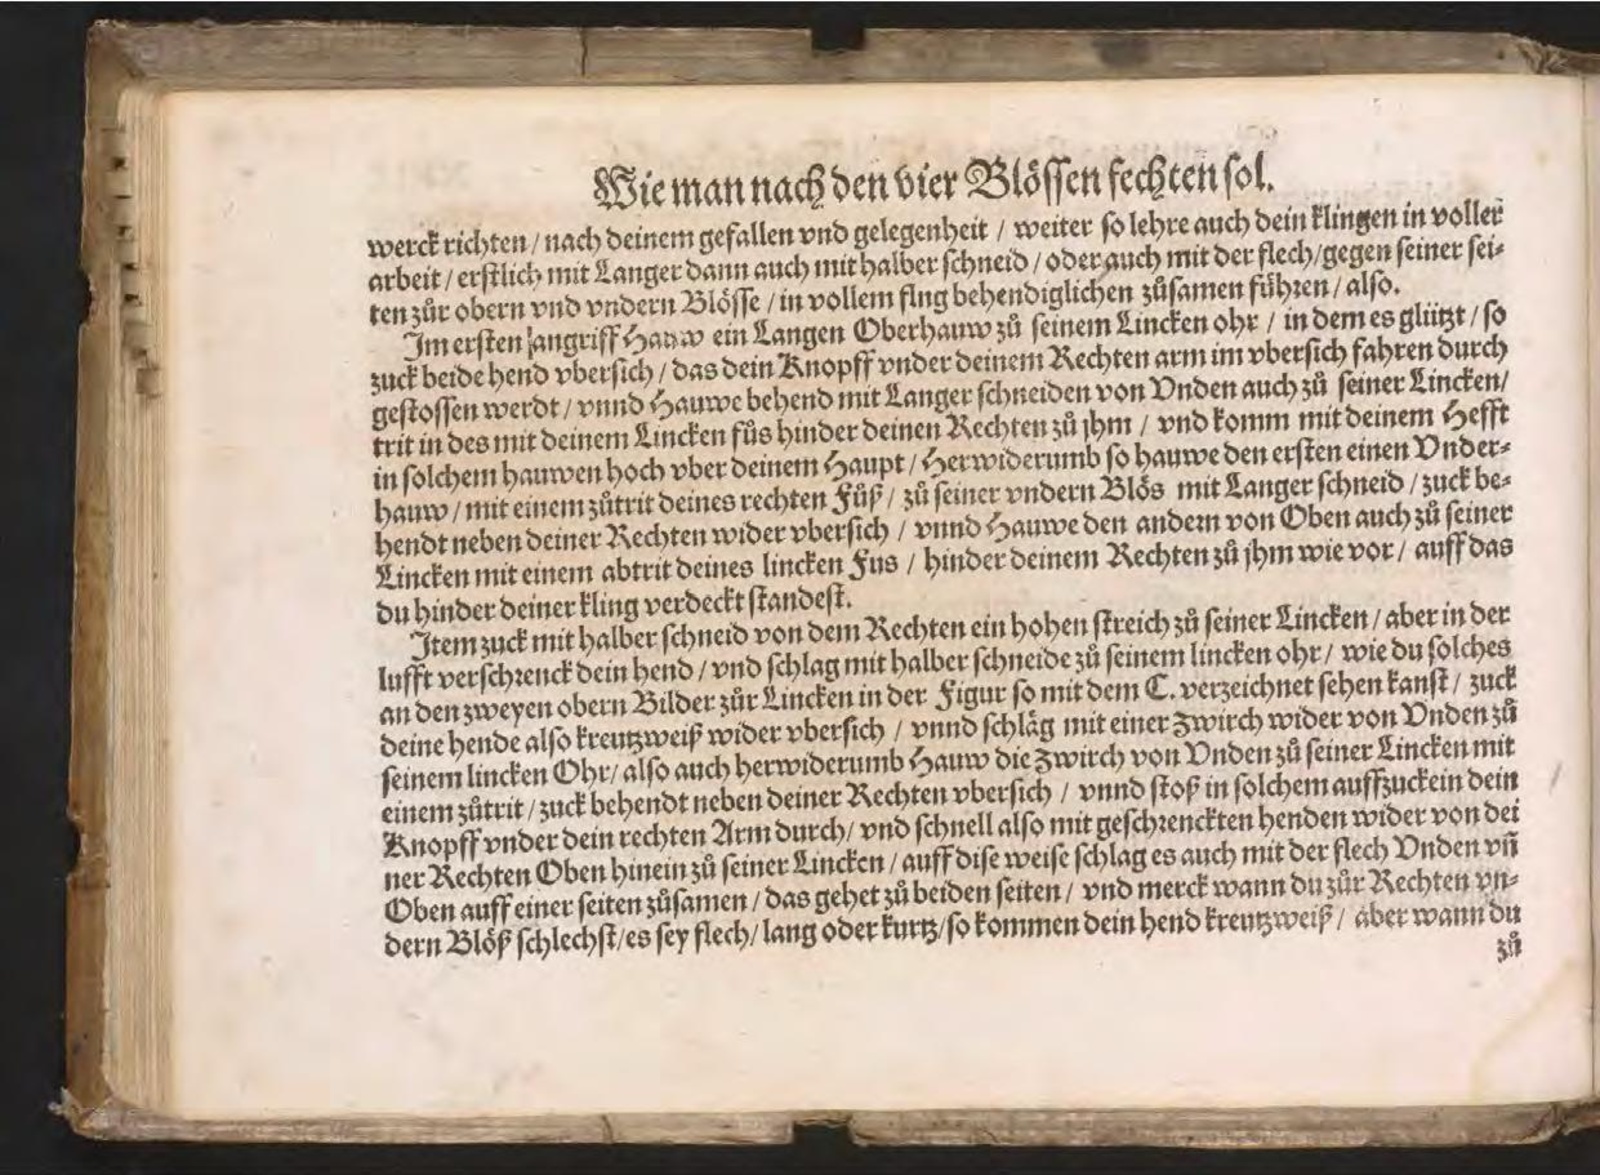 Wie man nach den vier Blössen fechten sol.
werck richten / nach deinem gefallen vnd gelegenheit / weiter so lehre auch dein klingen in voller
arbeit / erstlich mit Langer dann auch mit halber schneid / oder auch mit der flech / gegen seiner sei⸗
ten zůr obern vnd vndern Blösse / in vollem flng behendiglichen zůsamen fühꝛen / also.
Im ersten angriff Hauw ein Langen Oberhauw zů seinem Lincken ohr / in dem es glützt / so
zuck beide hend vbersich / das dein Knopff vnder deinem Rechten arm im vbersich fahren durch
gestossen werdt / vnnd Hauwe behend mit Langer schneiden von Vnden auch zů seiner Lincken /
trit in des mit deinem Lincken fůs hinder deinen Rechten zů jhm / vnd komm mit deinem Hefft
in solchem hauwen hoch vber deinem Haupt / Herwiderumb so hauwe den ersten einen Vnder⸗
hauw / mit einem zůtrit deines rechten Fůß / zů seiner vndern Blös mit Langer schneid / zuck be⸗
hendt neben deiner Rechten wider vbersich / vnnd Hauwe den andern von Oben auch zů seiner
Lincken mit einem abtrit deines lincken Fus / hinder deinem Rechten zů jhm wie vor / auff das
du hinder deiner kling verdeckt standest.
Item zuck mit halber schneid von dem Rechten ein hohen streich zů seiner Lincken / aber in der
lufft verschꝛenck dein hend / vnd schlag mit halber schneide zů seinem lincken ohr / wie du solches
an den zweyen obern Bilder zůr Lincken in der Figur so mit dem C. verzeichnet sehen kanst / zuck
deine hende also kreutzweiß wider vbersich / vnnd schlag mit einer Zwirch wider von Vnden zů
seinem lincken Ohr / also auch herwiderumb Hauw die Zwirch von Vnden zů seiner Lincken mit
einem zůtrit / zuck behendt neben deiner Rechten vbersich / vnnd stoß in solchem auffzuckein dein
Knopff vnder dein rechten Arm durch / vnd schnell also mit geschꝛenckten henden wider von dei
ner Rechten Oben hinein zů seiner Lincken / auff dise weise schlag es auch mit der flech Vnden vñ
Oben auff einer seiten zůsamen / das gehet zů beiden seiten / vnd merck wann du zůr Rechten vn⸗
dern Blöß schlechst / es sey flech / lang oder kurtz / so kommen dein hend kreutzweiß / aber wann du
zů